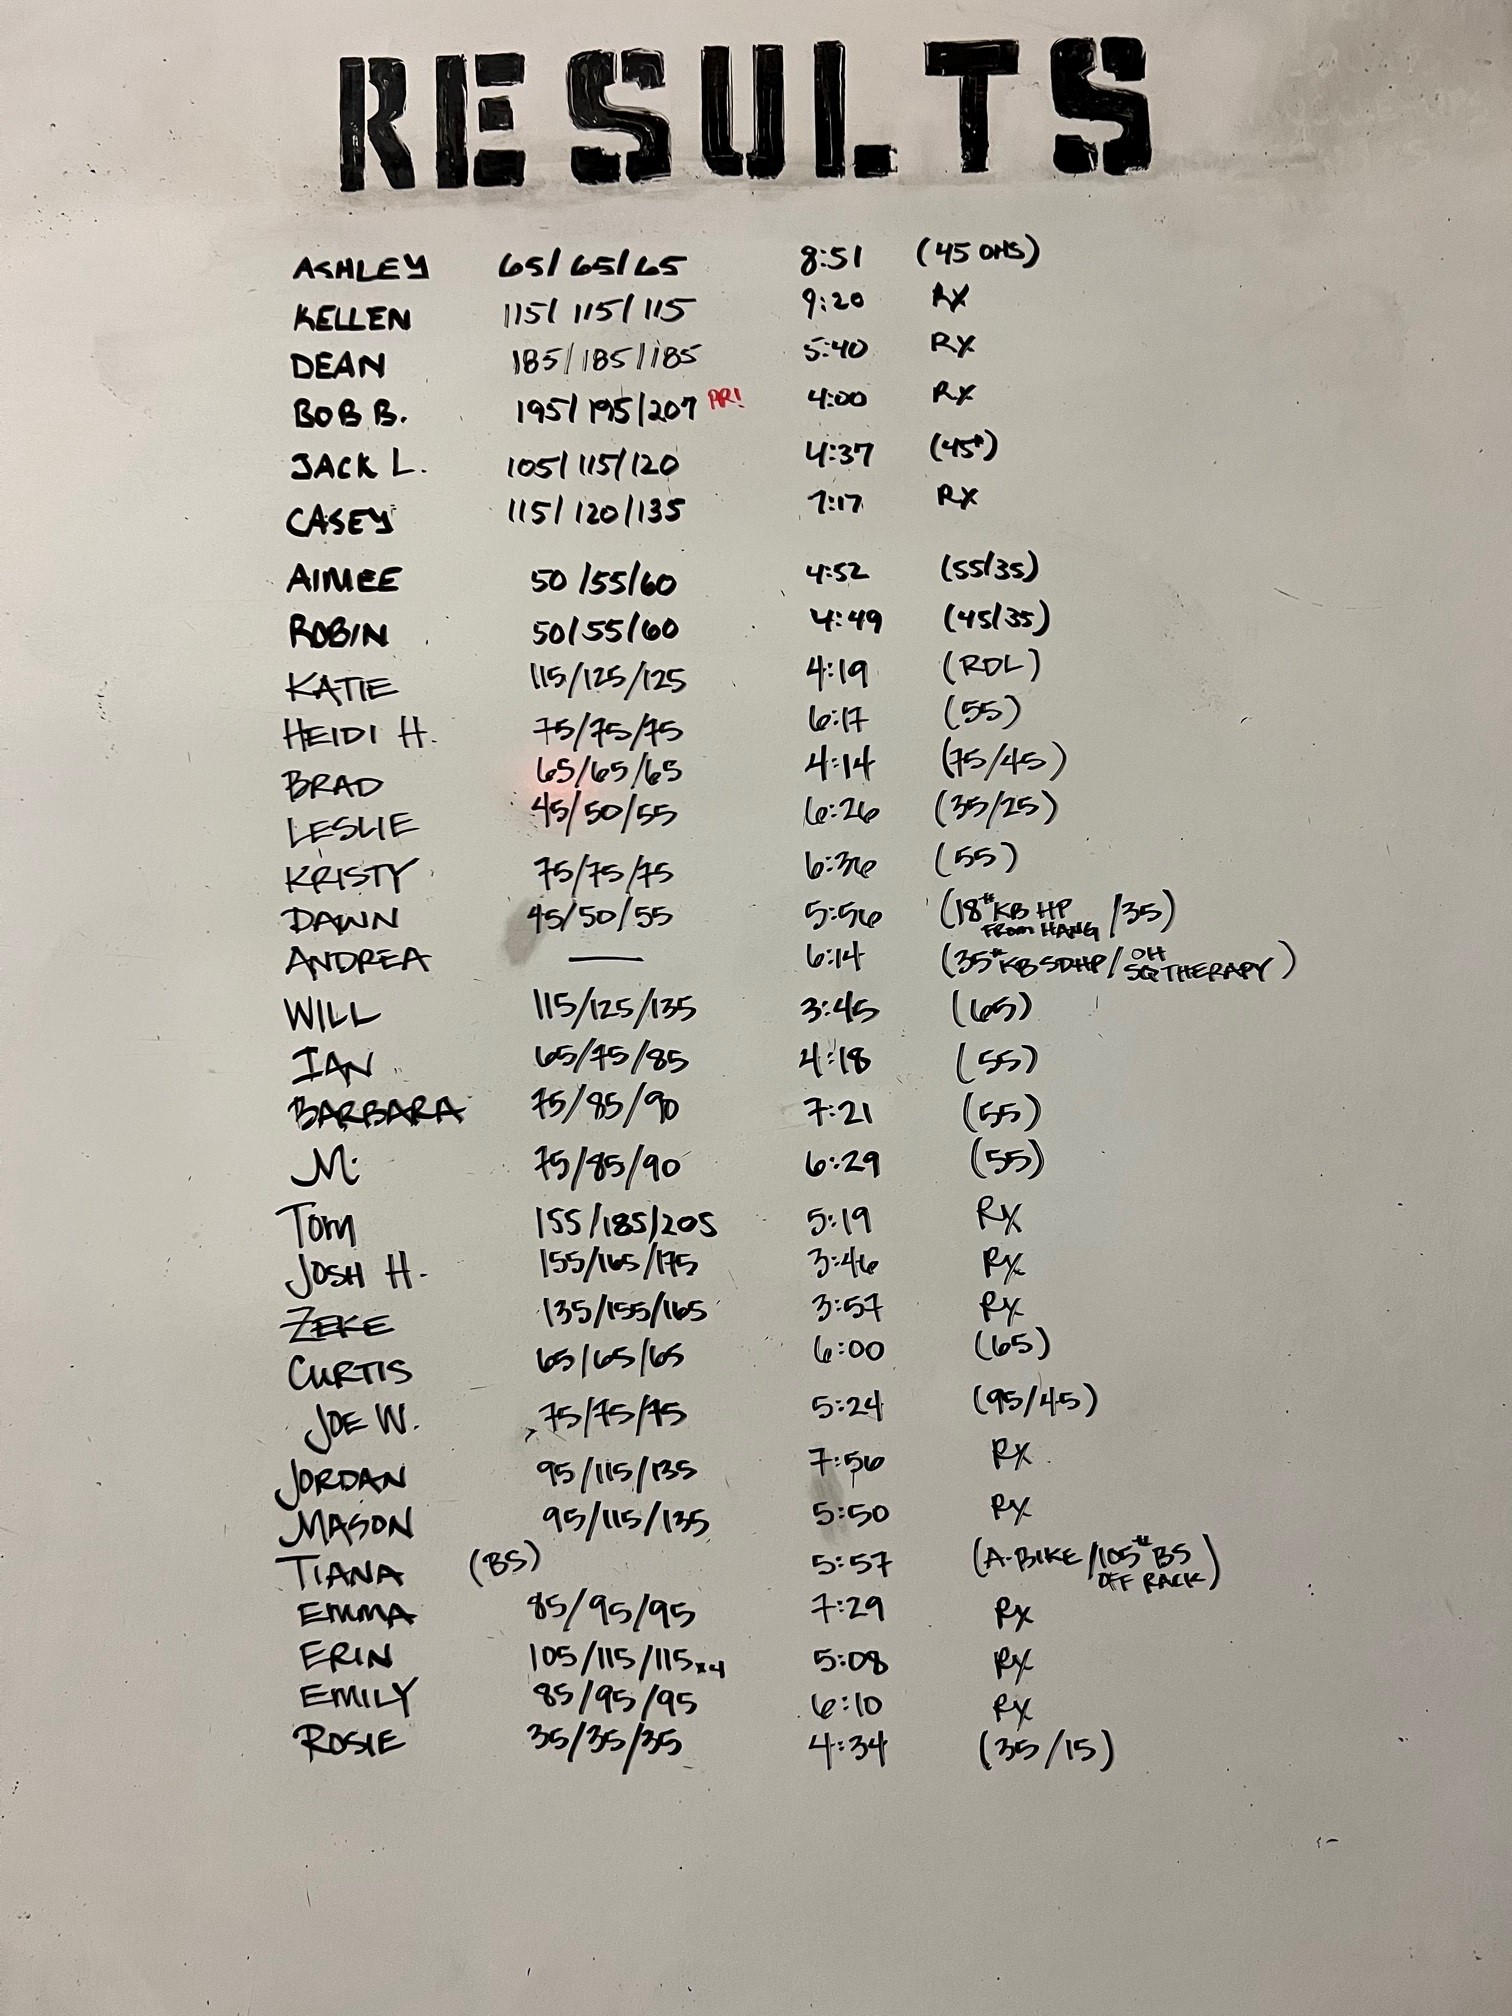 RESULTS
ASHLEY 65/65/65 8:51 (45 OHS)
KELLEN 115/115/115 9:20 RX
DEAN 185/185/185 5:40 RX
BOB B. 195/195/207 PR! 4:00 RX
JACK L. 105/115/120 4:37 (45#)
CASEY 115/120/135 7:17 RX
AIMEE 50/55/60 4:52 (55/35)
ROBIN 50/55/60 4:49 (45/35)
KATIE 115/125/125 4:19 (RDL)
HEIDI H. 75/75/75 6:17 (55)
BRAD 65/65/65 4:14 (75/45)
LESLIE 45/50/55 6:26 (35/25)
KRISTY 75/75/75 6:36 (55)
DAWN 45/50/55 5:56 (18# KB HP FROM HANG /35)
ANDREA — 6:14 (35# KB SDHP/OH SQ THERAPY)
WILL 115/125/135 3:45 (65)
IAN 65/75/85 4:18 (55)
BARBARA 75/85/90 7:21 (55)
M. 75/85/90 6:29 (55)
TOM 155/185/205 5:19 RX
JOSH H. 155/165/175 3:46 RX
ZEKE 135/155/165 3:57 RX
CURTIS 65/65/65 6:00 (65)
JOE W. 75/75/75 5:24 (95/45)
JORDAN 95/115/135 7:56 RX
MASON 95/115/135 5:50 RX
TIANA (BS) 5:57 (A-BIKE/105# BS OFF RACK)
EMMA 85/95/95 7:29 RX
ERIN 105/115/115x4 5:08 RX
EMILY 85/95/95 6:10 RX
ROSIE 35/35/35 4:34 (35/15)